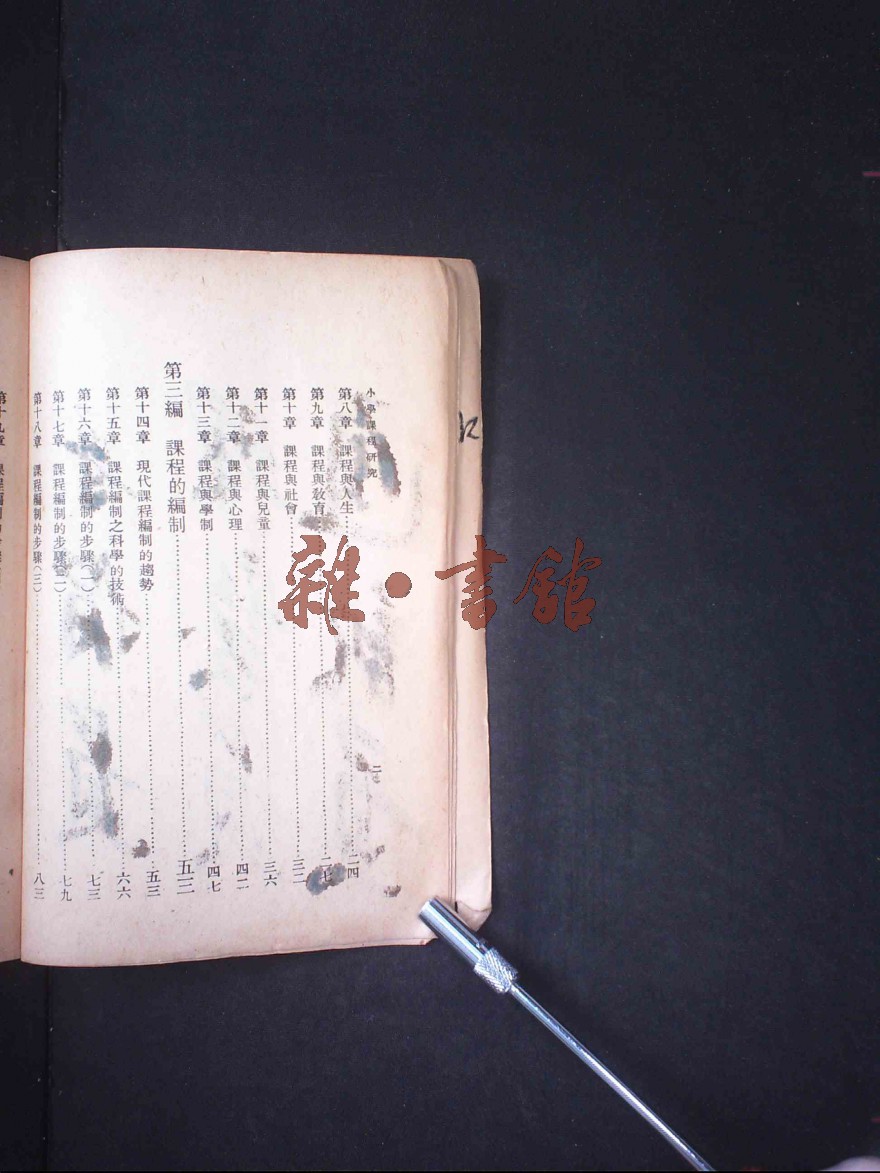 小學課程研究 二
第八章 課程與人生 二四
第九章 課程與教育 二七
第十章 課程與社會 三二
第十一章 課程與兒童 三六
第十二章 課程與心理 四二
第十三章 課程與學制 四七
第三編 課程的編制 五三
第十四章 現代課程編制的趨勢 五三
第十五章 課程編制之科學的技術 六六
第十六章 課程編制的步驟(一) 七三
第十七章 課程編制的步驟(二) 七九
第十八章 課程編制的步驟(三) 八三
第十九章 課程編制的
雜·書館